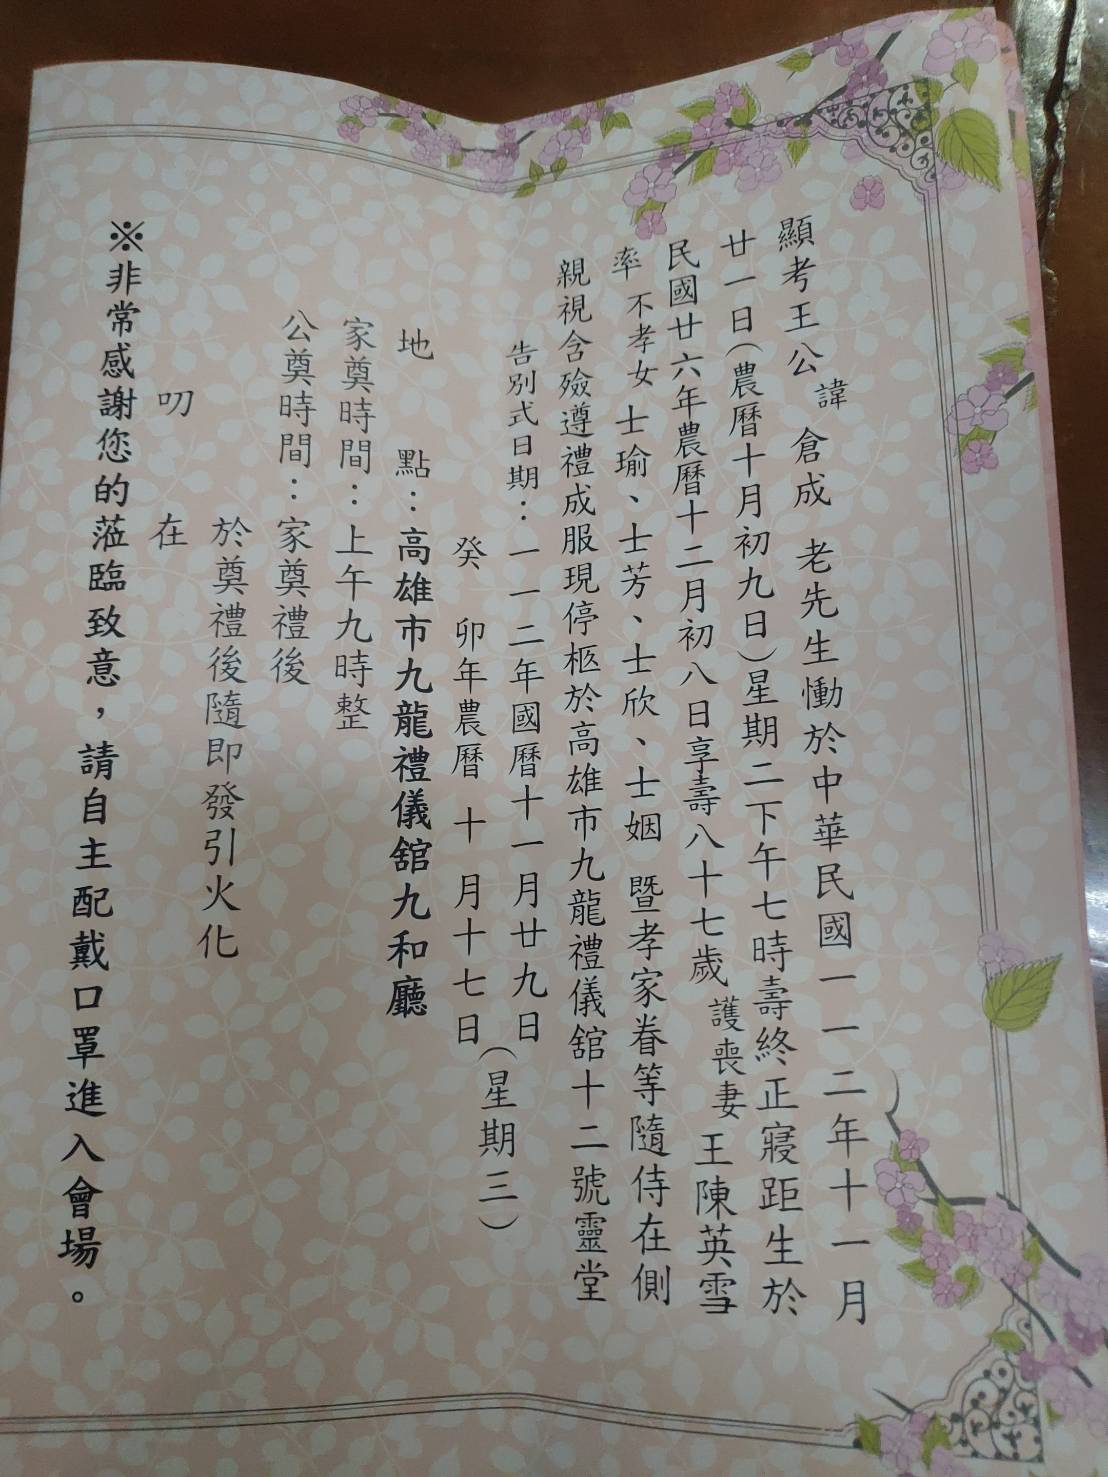 顯考王公諱倉成老先生慟於中華民國一一二年十一月
廿一日(農曆十月初九日)星期二下午七時壽終正寢距生於
民國廿六年農曆十二月初八日享壽八十七歲護喪妻王陳英雪
率不孝女士瑜、士芳、士欣、士姻暨孝家眷等隨侍在側
親視含殮遵禮成服現停柩於高雄市九龍禮儀舘十二號靈堂
告別式日期：一一二年國曆十一月廿九日
癸卯年農曆十月十七日
(星期三)
地點：高雄市九龍禮儀舘九和廳
家奠時間：上午九時整
公奠時間：家奠禮後
於奠禮後隨即發引火化
叨在
※非常感謝您的蒞臨致意，請自主配戴口罩進入會場。